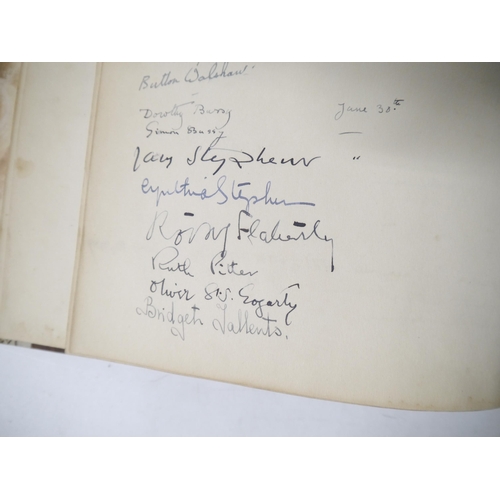 Button Walshaw"
Dorothy Bussy June 30th
Simon Bussy —
Stephens "
Cynthia Stephens
Flaherty
Ruth Pitter
Oliver St.J. Gogarty
Bridget Tallents.